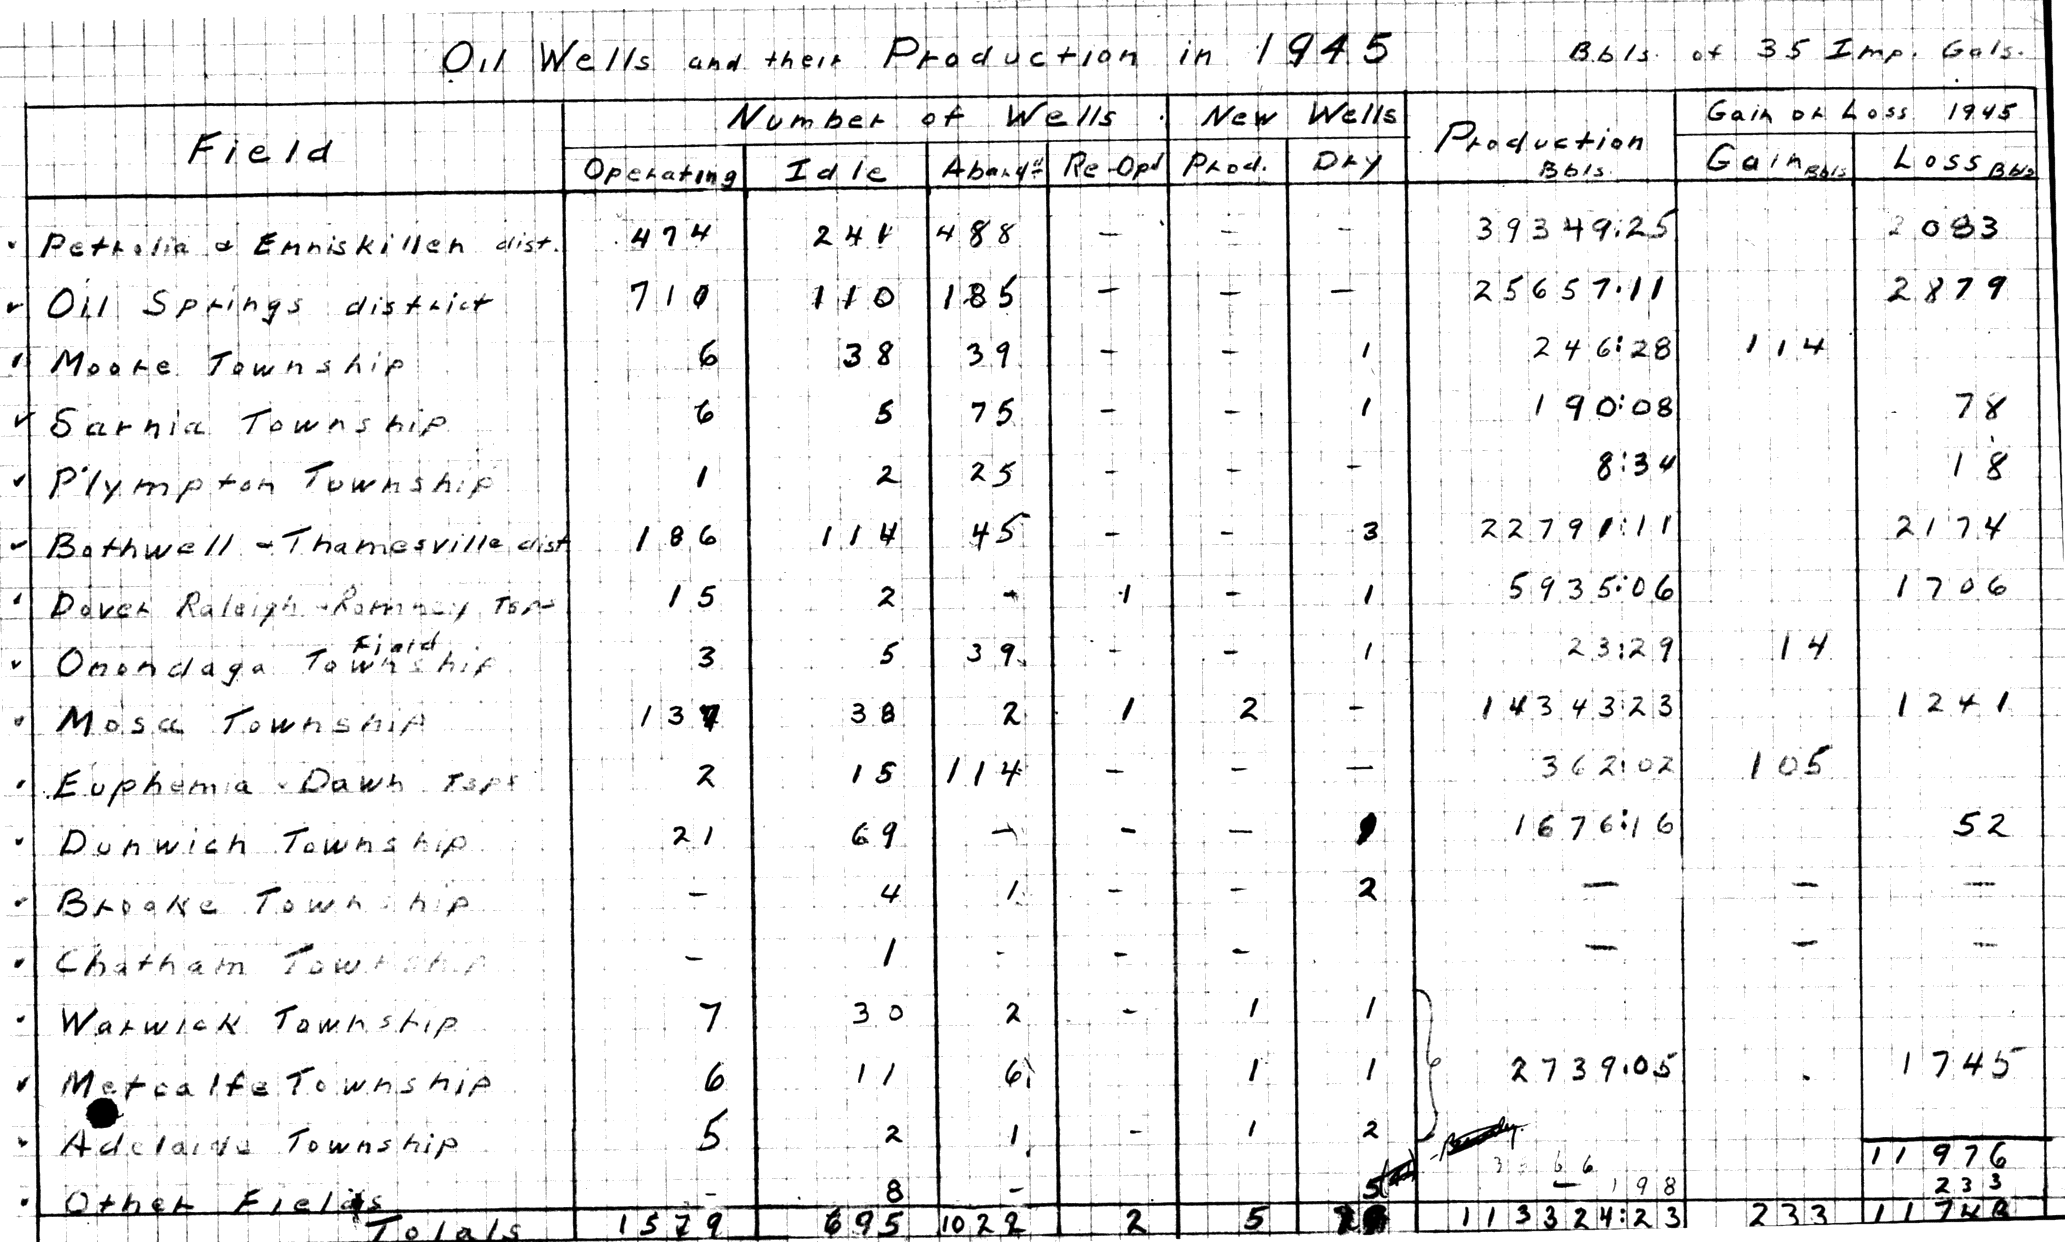 Oil Wells and their Production in 1945 Bbls. of 35 Imp. Gals.
Field Number of Wells New Wells Production Bbls. Gain or Loss 1945
Operating Idle Aband'd Re-Opd Prod. Dry Gain Bbls Loss Bbls
Petrolia & Enniskillen dist. 474 241 488 — — — 39349:25 2083
Oil Springs district 710 110 185 — — — 25657:11 2879
Moore Township 6 38 39 — — 1 246:28 114
Sarnia Township 6 5 75 — — 1 190:08 78
Plympton Township 1 2 25 — — — 8:34 18
Bothwell - Thamesville dist 186 114 45 — — 3 22791:11 2174
Dover Raleigh - Romney Tsps 15 2 — 1 — 1 5935:06 1706
Field
Onondaga Township 3 5 39 — — 1 23:29 14
Mosa Township 137 38 2 1 2 — 14343:23 1241
Euphemia & Dawn Tsps 2 15 114 — — — 362:02 105
Dunwich Township 21 69 — — — 1676:16 52
Brooke Township — 4 1 — — 2 — — —
Chatham Township — 1 — — — — — —
Warwick Township 7 30 2 — 1 1
Metcalfe Township 6 11 6 1 1 2739:05 1745
Adelaide Township 5 2 1 — 1 2
11976
Other Fields — 8 — 5 — 198 233
Totals 1579 695 1022 2 5 113324:23 233 11743